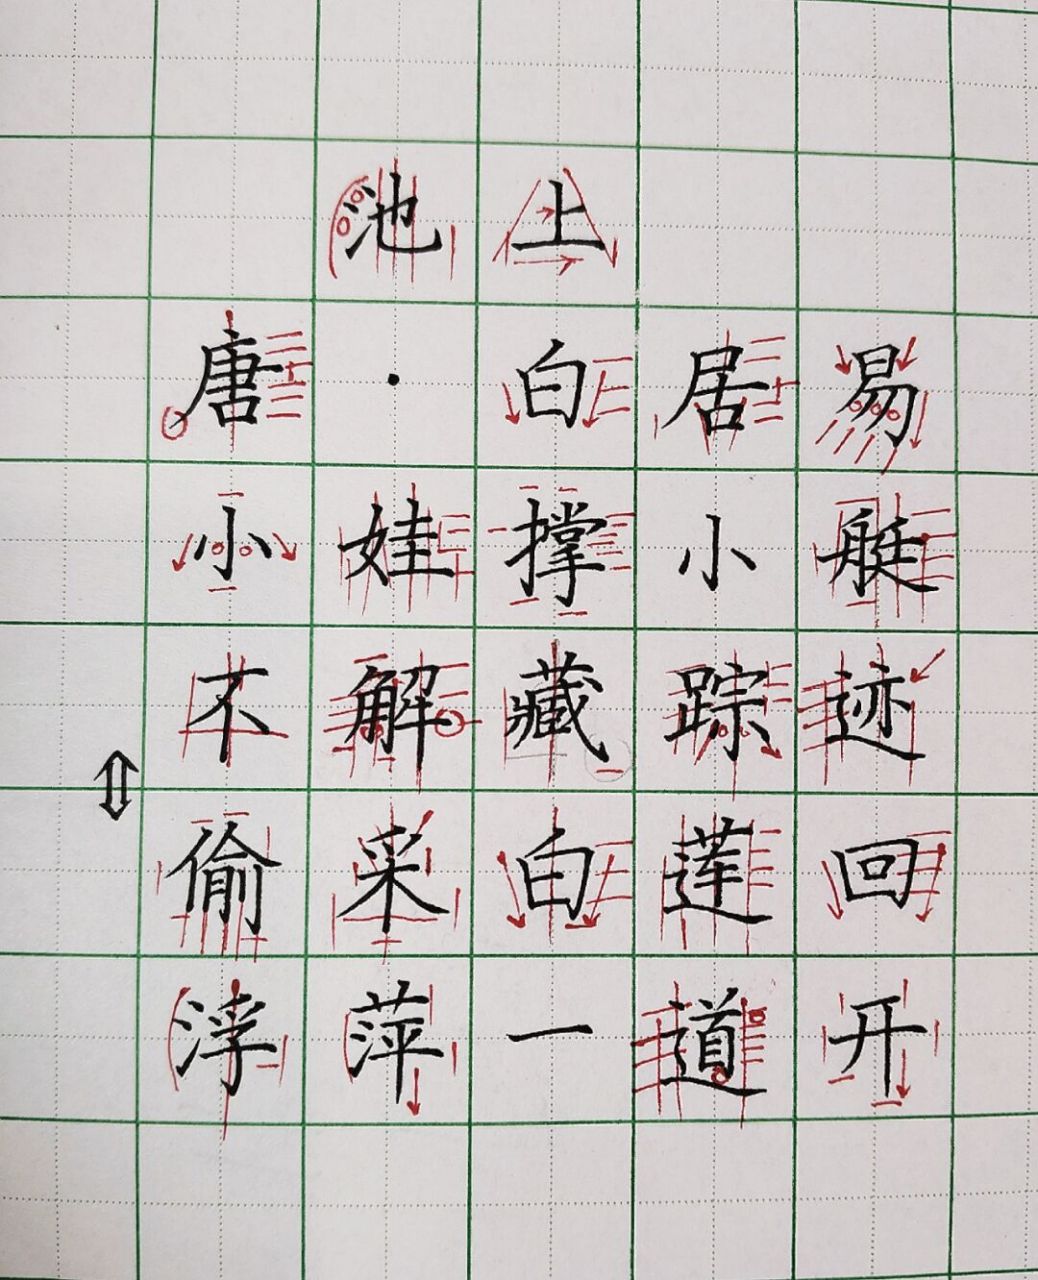 池上
唐·白居易
小娃撑小艇
不解藏踪迹
偷采白莲回
浮萍一道开